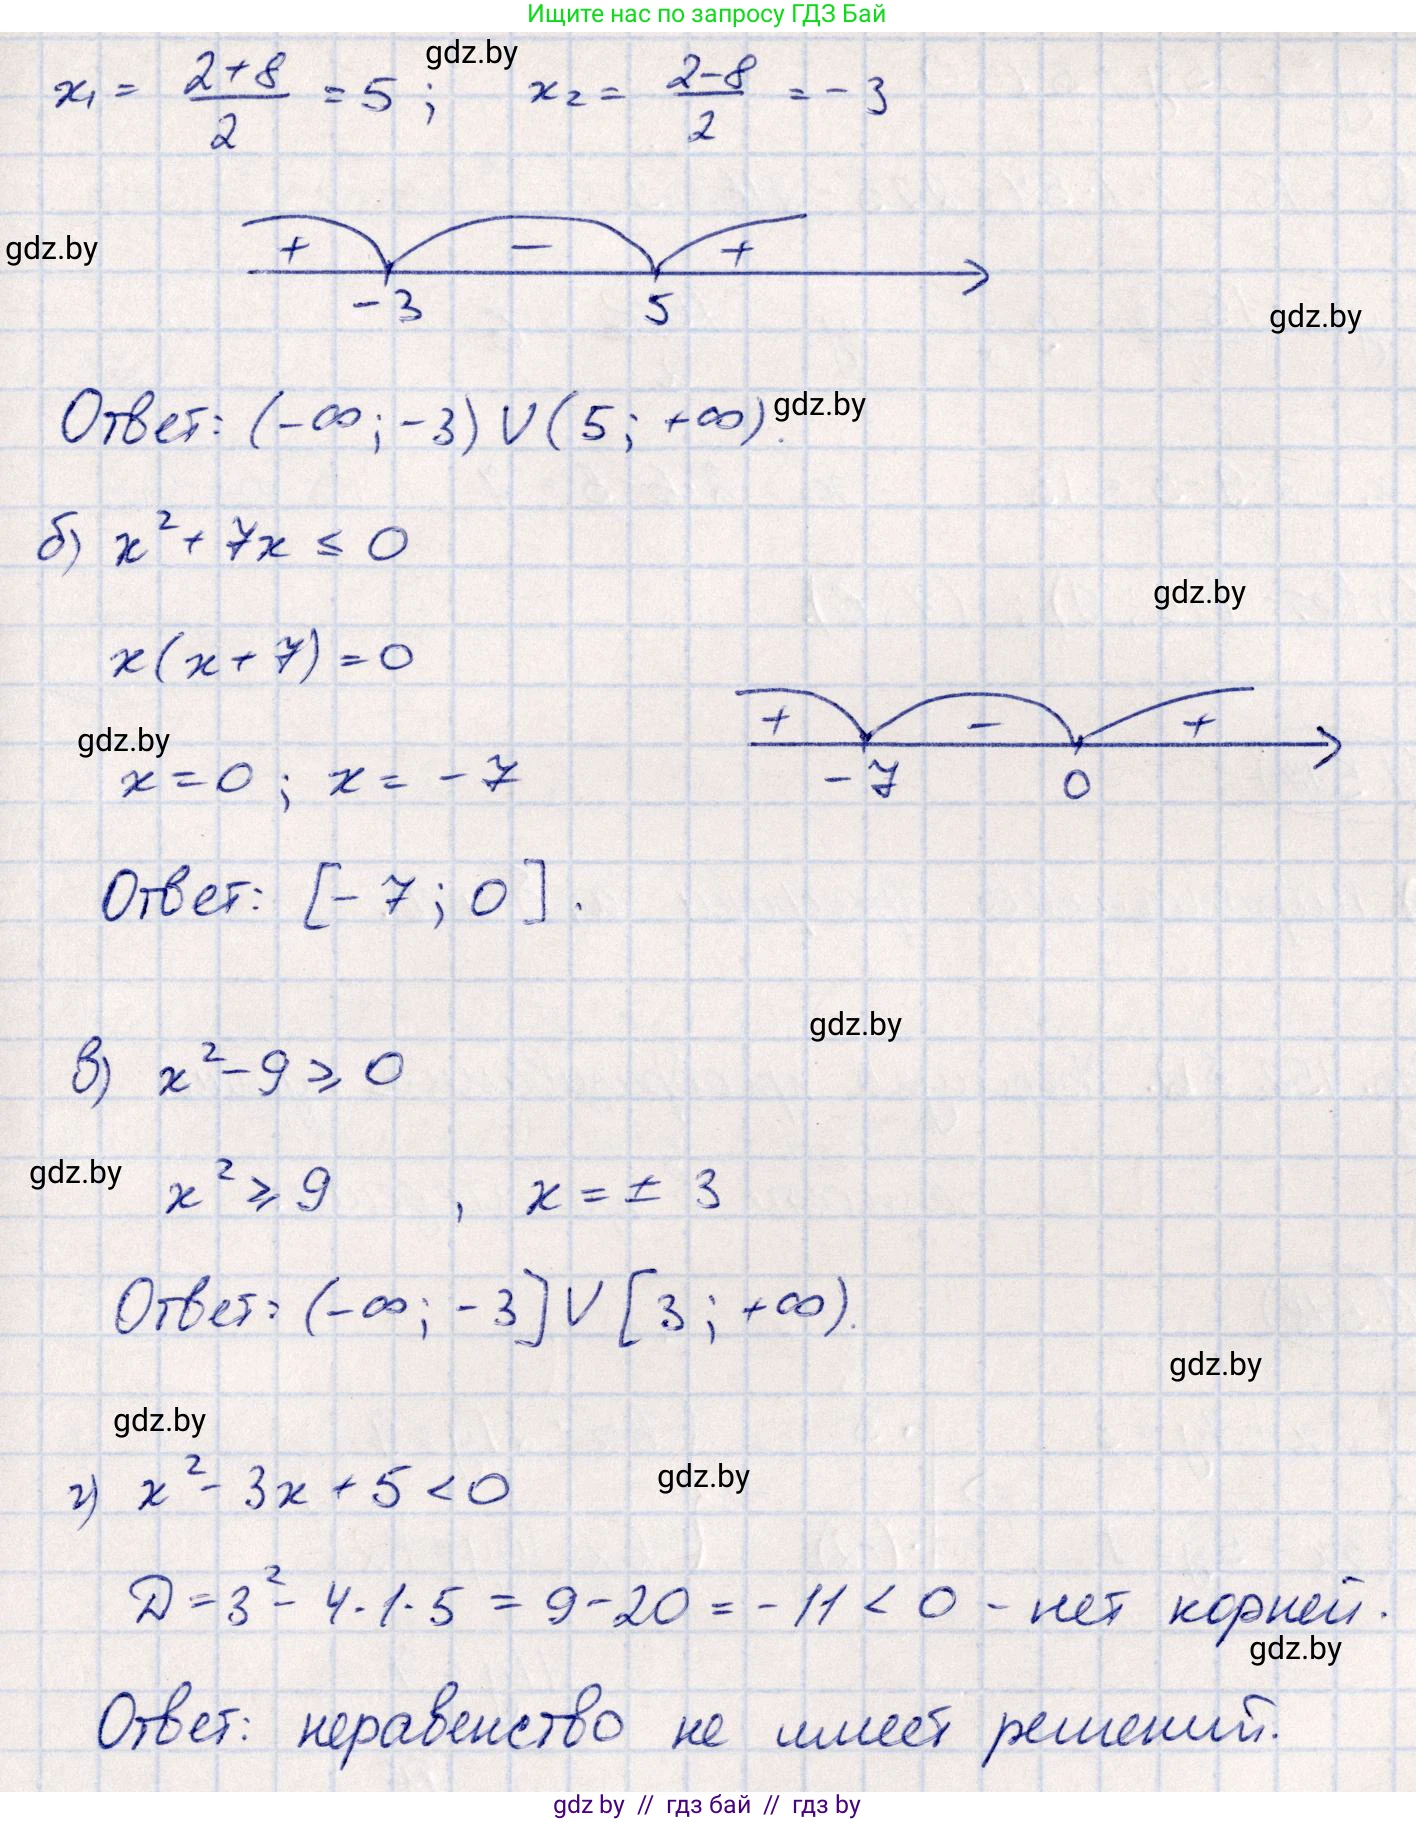 Ищите нас по запросу ГДЗ Бай
gdz.by
x₁ = (2+8)/2 = 5 ; x₂ = (2-8)/2 = -3
gdz.by
+ - +
-3 5
gdz.by
Ответ: (-∞; -3) ∪ (5; +∞).
gdz.by
б) x² + 7x ≤ 0
gdz.by
x(x+7) = 0
gdz.by
+ - +
x = 0 ; x = -7
-7 0
Ответ: [-7; 0].
gdz.by
в) x² - 9 ⩾ 0
gdz.by
x² ⩾ 9 , x = ± 3
Ответ: (-∞; -3] ∪ [3; +∞).
gdz.by
gdz.by
г) x² - 3x + 5 < 0
gdz.by
D = 3² - 4·1·5 = 9 - 20 = -11 < 0 - нет корней.
gdz.by
Ответ: неравенство не имеет решений.
gdz by // гдз бай // гдз by